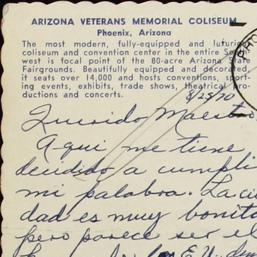 ARIZONA VETERANS MEMORIAL COLISEUM
Phoenix, Arizona
The most modern, fully-equipped and
coliseum and convention center in the entire
west is focal point of the 80-acre Arizona State
Fairground. Beautifully equipped and decorated,
it seats over 14,000 and hosts conventions,
ing events, exhibits, trade shows, theatrical
ductions and concerts.
Querido Maestro
Aqui me tiene
decidido a cumplir
mi palabra. La ciu
dad es muy bonita
pero parece ser el